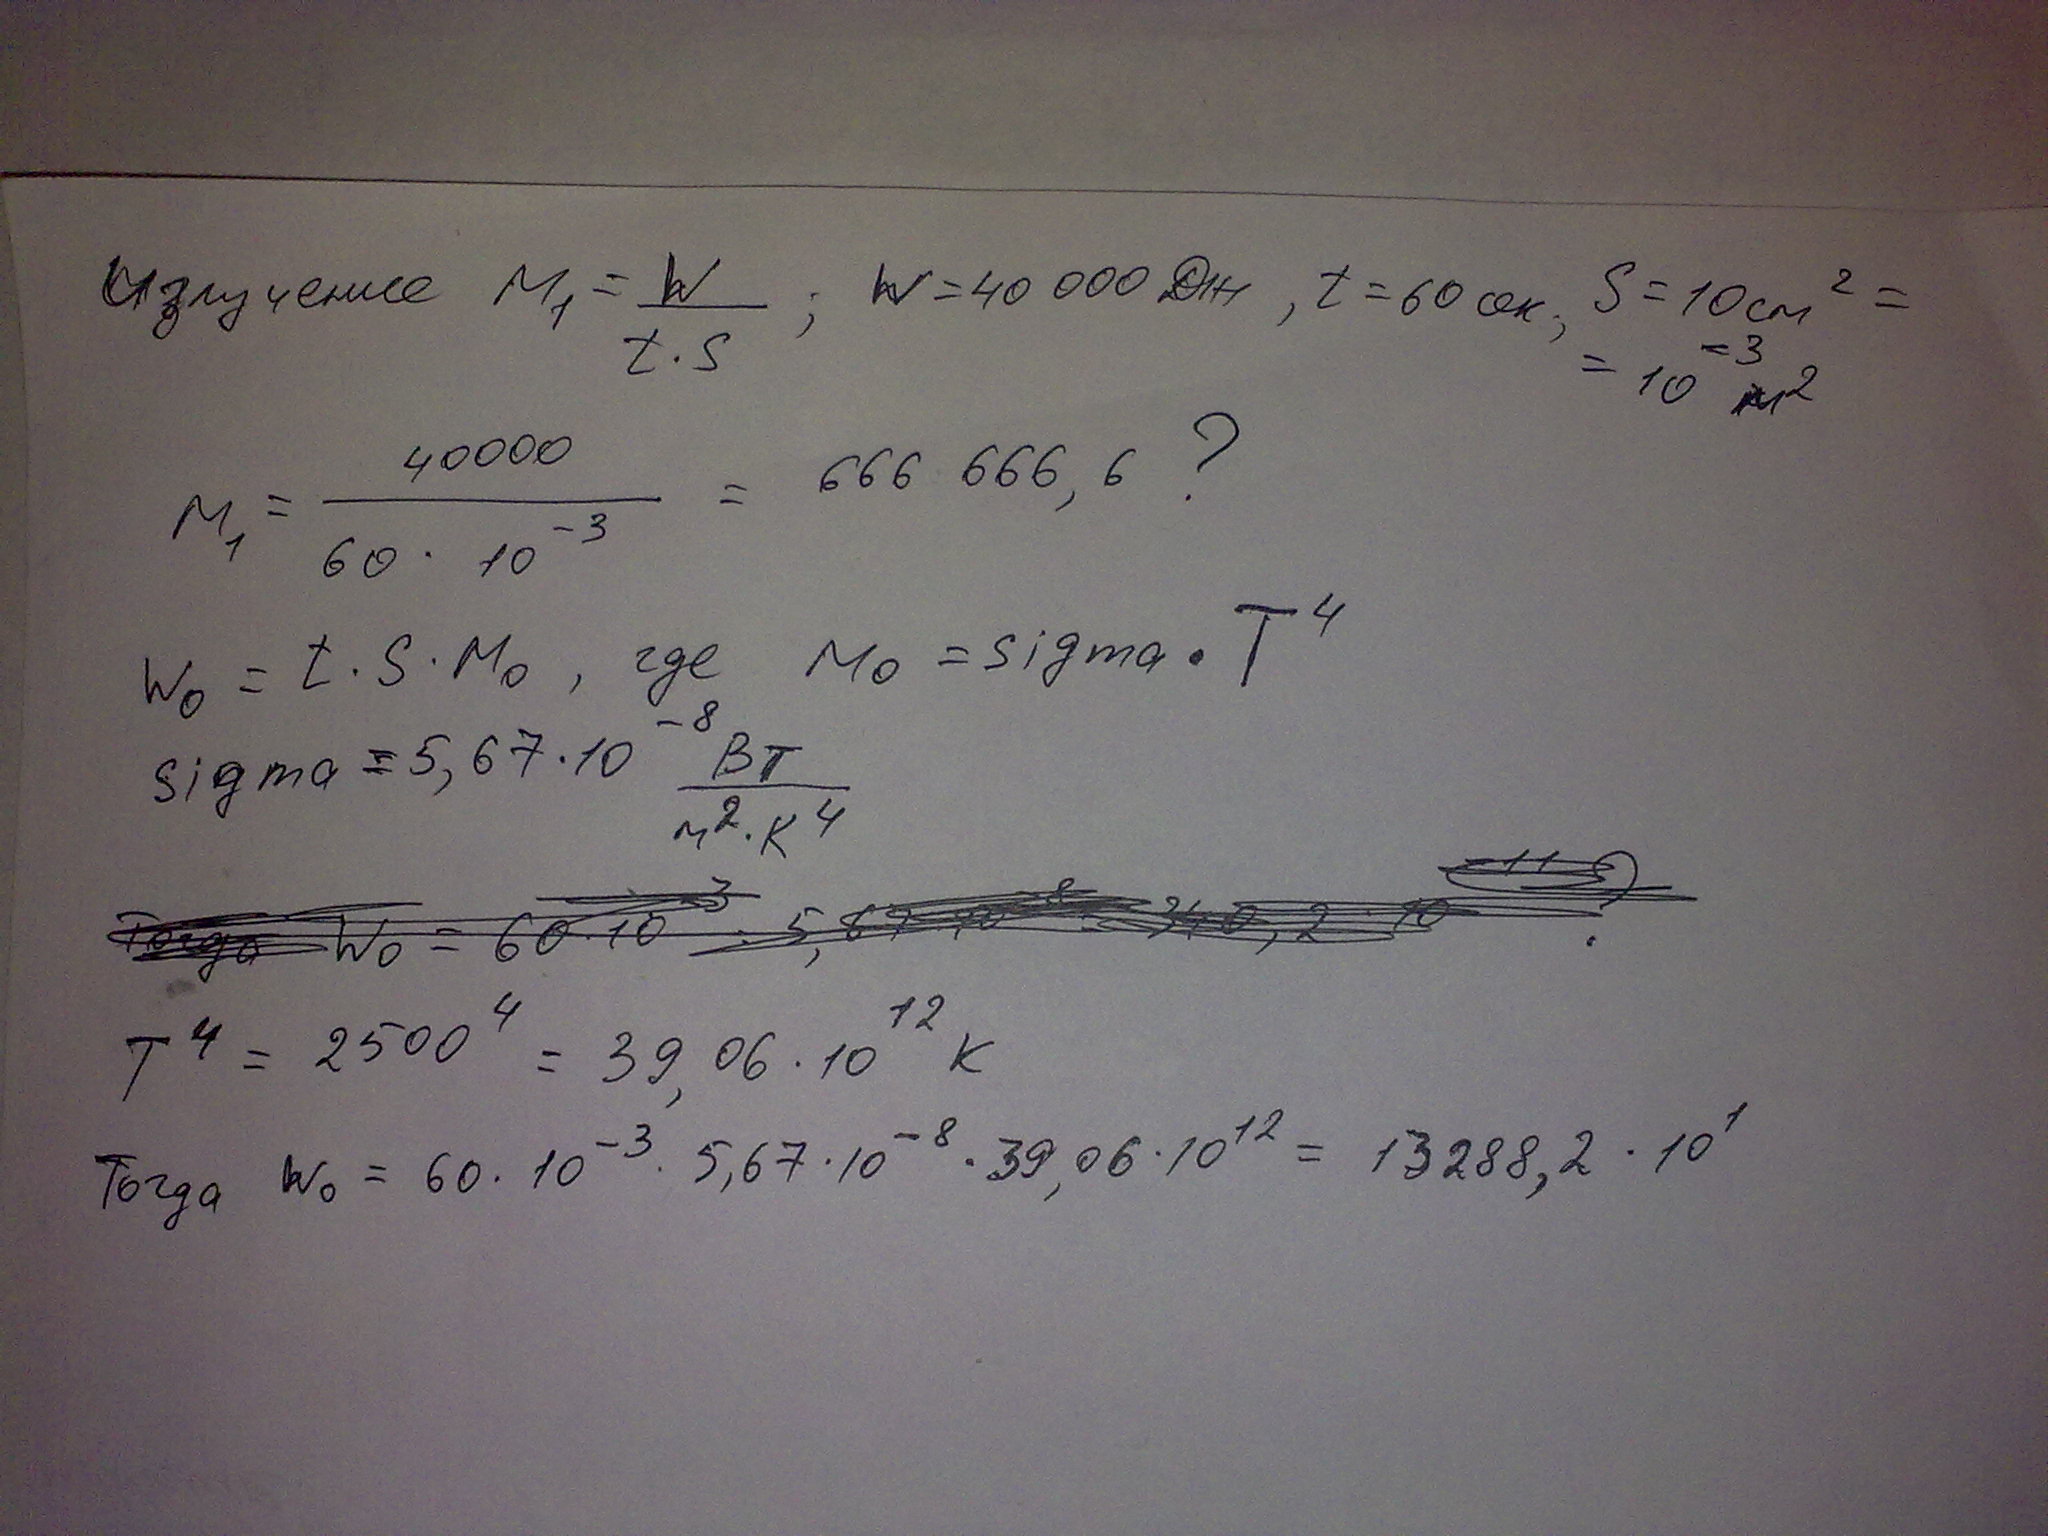 Излучение M₁ = W / (t · S) ; W = 40 000 Дж , t = 60 сек, S = 10 см² =
= 10⁻³ м²
M₁ = 40000 / (60 · 10⁻³) = 666 666, 6 ?
W₀ = t · S · M₀ , где M₀ = sigma · T⁴
sigma = 5,67 · 10⁻⁸ Вт / (м² · К⁴)
Тогда W₀ = 60 · 10⁻³ · 5,67 · 10⁻⁸ = 340,2 · 10⁻¹¹ ?
T⁴ = 2500⁴ = 39,06 · 10¹² К
Тогда W₀ = 60 · 10⁻³ · 5,67 · 10⁻⁸ · 39,06 · 10¹² = 13288,2 · 10¹